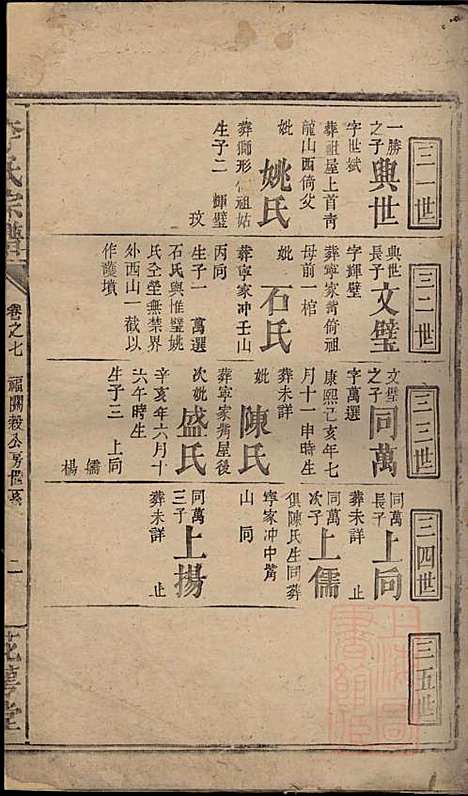 三一世
一勝之子
興世
字世斌
葬祖屋上首靑
龍山西倚父
妣
姚氏
葬獅形倚祖姑
生子二 輝璧
玟
三二世
興世長子
文璧
字輝璧
葬寧家嘴倚祖
母前一棺
妣
石氏
葬寧家冲壬山
丙同
生子一 萬選
石氏與惟璧姚
氏仝塋無禁界
外西山一截以
作護墳
三三世
文璧之子
同萬
字萬選
康熙己亥年七
月十一申時生
葬未詳
妣
陳氏
葬寧家嘴屋後
次妣
盛氏
辛亥年六月十
六午時生
生子三 上同
儒
楊
三四世
同萬長子
上同
葬未詳 止
同萬次子
上儒
俱陳氏生同葬
寧家冲中嘴
山同
同萬三子
上揚
葬未詳 止
三五世
李氏宗譜
卷之七
福開毅公房世系
二
花萼堂
上海圖書館藏